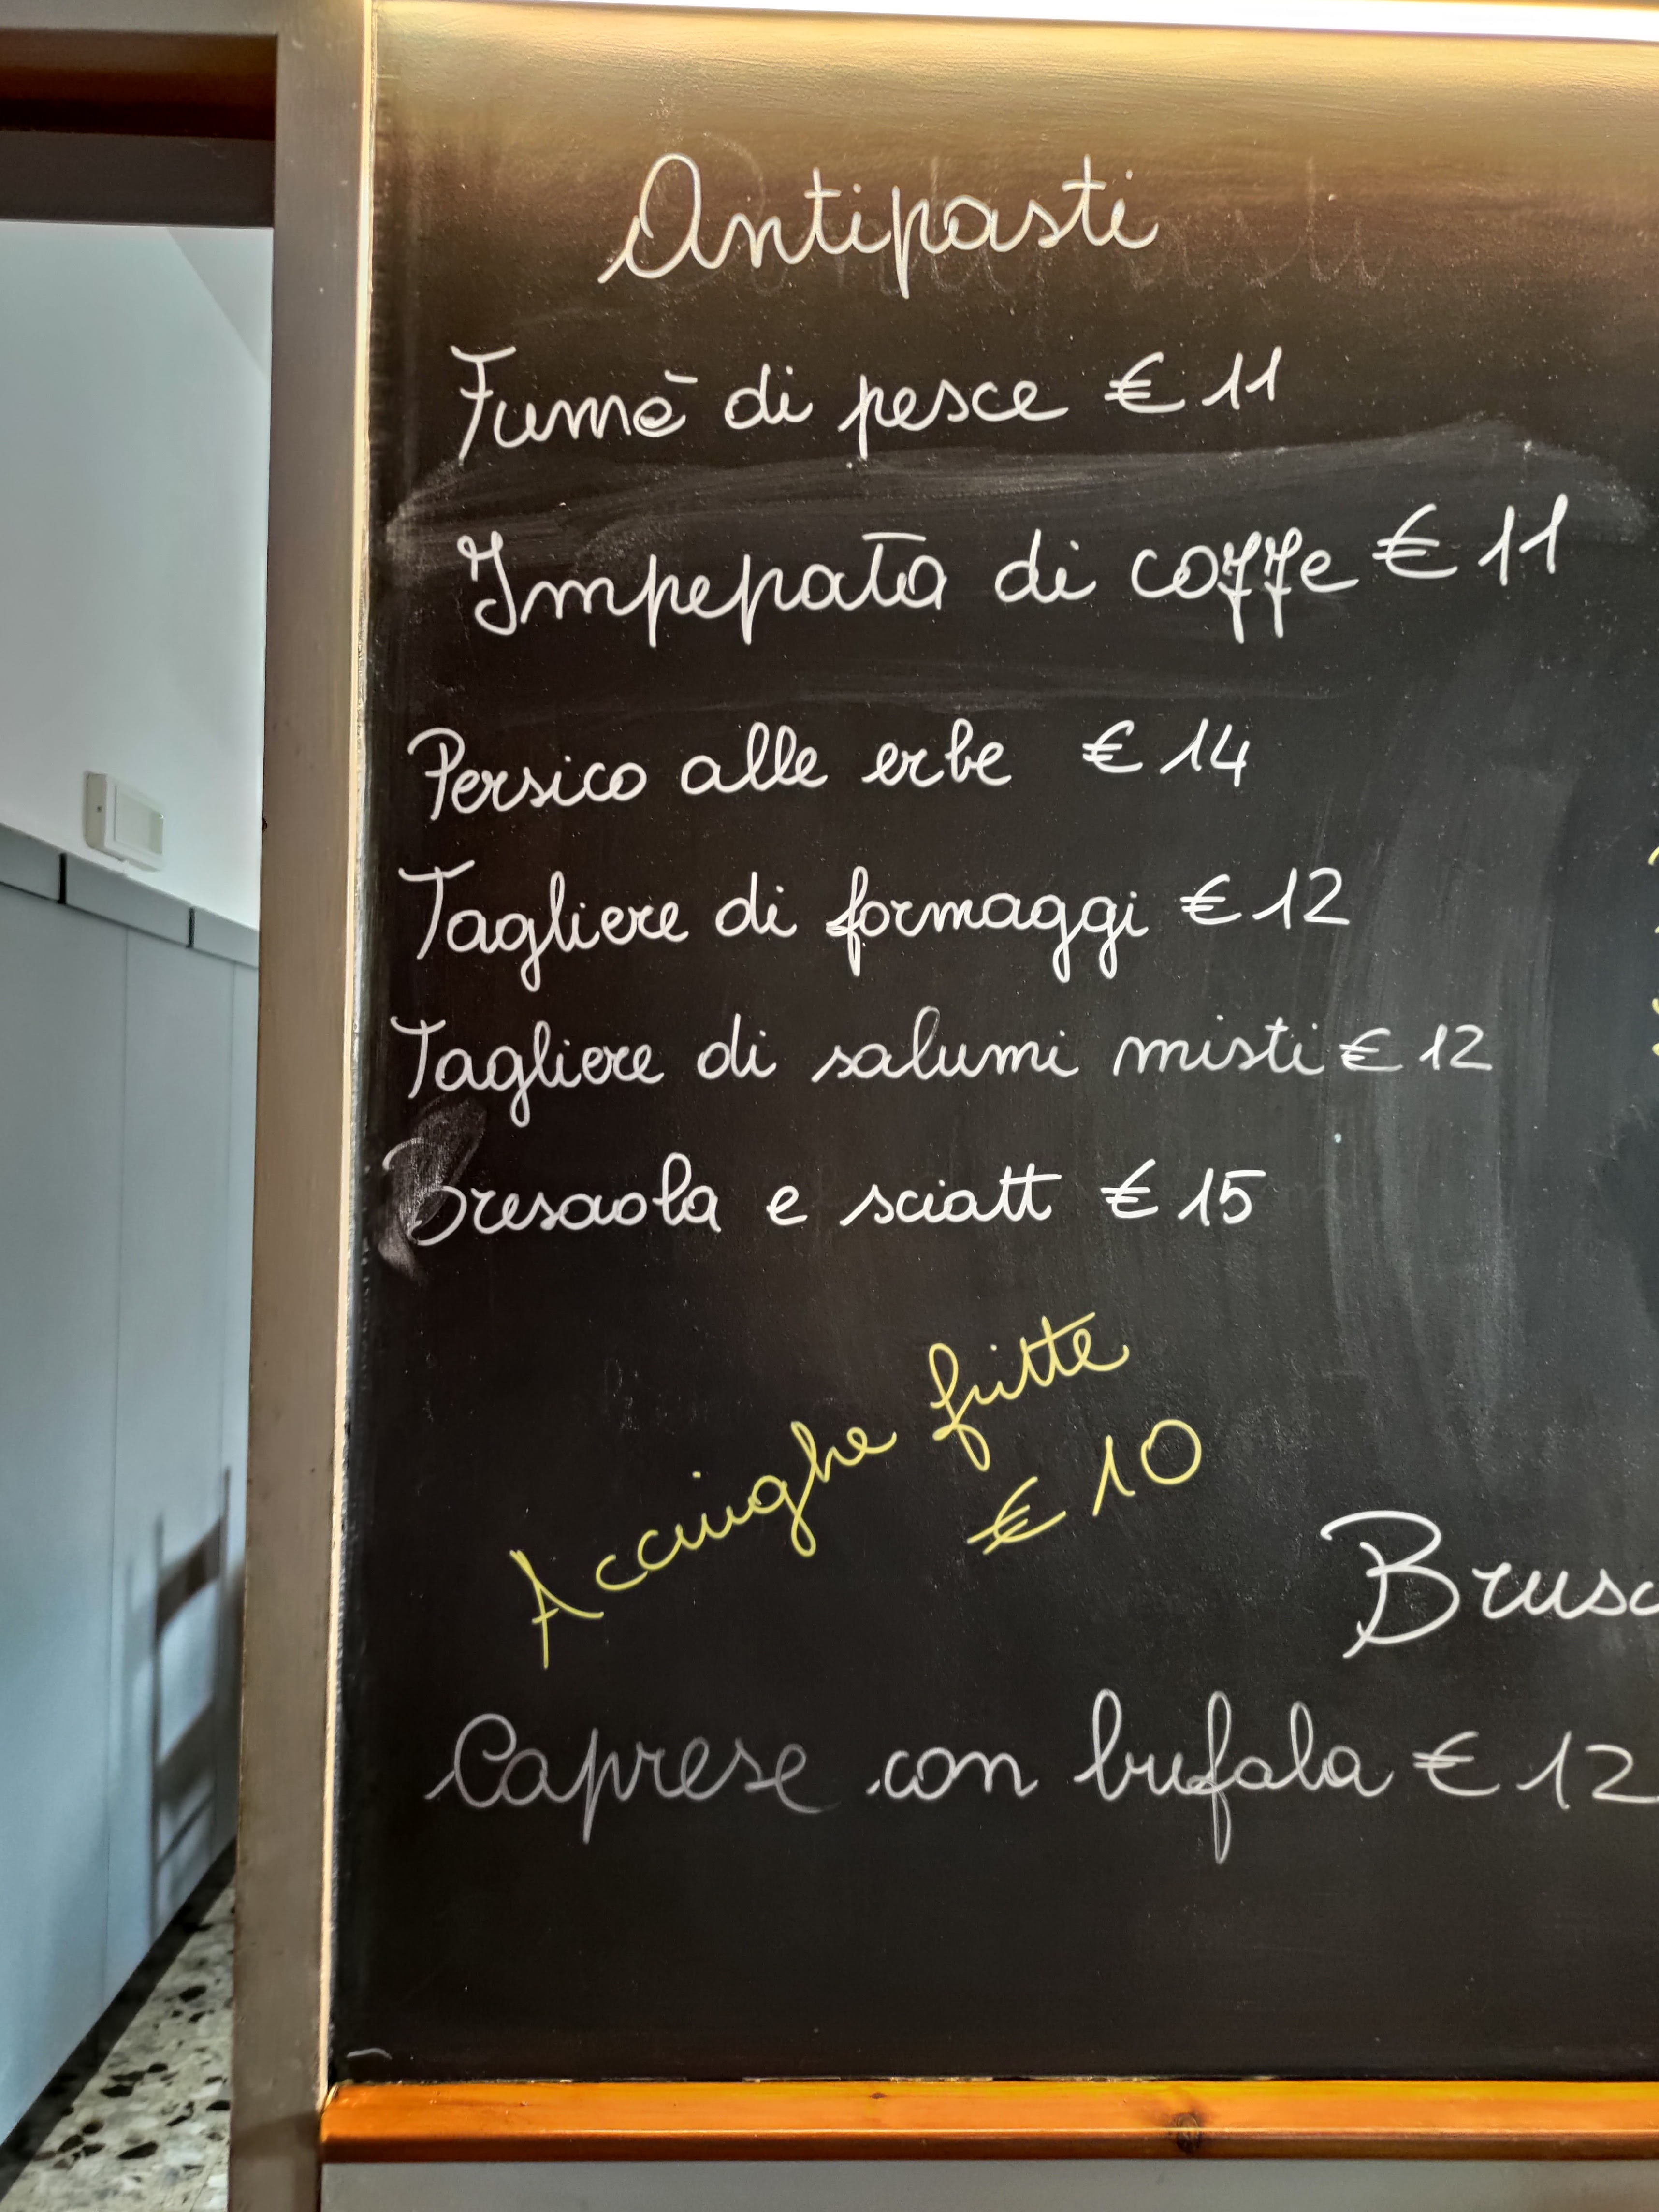 Antipasti
Fumè di pesce € 11
Impepata di cozze € 11
Persico alle erbe € 14
Tagliere di formaggi € 12
Tagliere di salumi misti € 12
Bresaola e sciatt € 15
Acciughe fritte
€ 10
Brusc
Caprese con bufala € 12